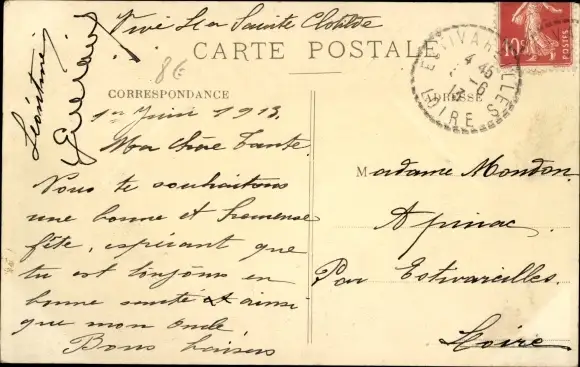 Vive la Sainte Clotilde
CARTE POSTALE
86
10c
POSTES
ESTIVAREILLES
4 45
1-6
13
LOIRE
Léontine
CORRESPONDANCE
ADRESSE
1er Juin 1913.
Ma Chère Tante.
Nous te souhaitons
une bonne et heureuse
fête, espérant que
tu est toujours en
bonne santé et ainsi
que mon oncle
Bons baisers
Madame Mondon.
Apinac.
Par Estivareilles.
Loire